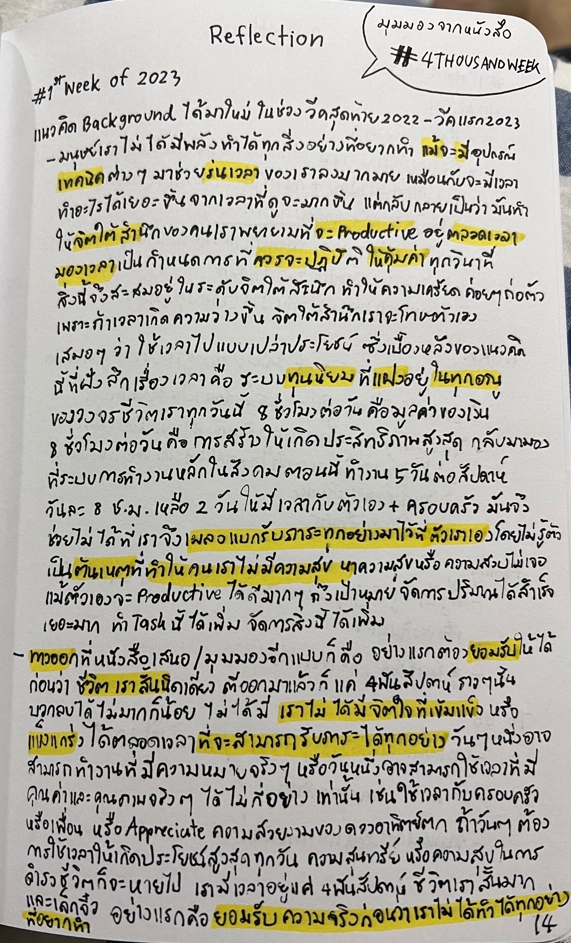 Reflection
มุมมองจากหนังสือ
#4THOUSANDWEEK
#1st Week of 2023
แนวคิด Background ได้มาใหม่ ในช่วงวีคสุดท้าย 2022 - วีคแรก 2023
- มนุษย์เราไม่ได้มีพลังทำได้ทุกสิ่งอย่างที่อยากทำ แม้จะมีอุปกรณ์
เทคนิคต่างๆ มาช่วยร่นเวลา ของเราลงมากมาย เหมือนกับจะมีเวลา
ทำอะไรได้เยอะขึ้น จากเวลาที่ดูจะมากขึ้น แต่กลับกลายเป็นว่า มันทำ
ให้จิตใต้สำนึกของคนเราพยายามที่จะ Productive อยู่ตลอดเวลา
มองเวลาเป็นกำหนดการที่ควรจะปฏิบัติ ให้คุ้มค่าทุกวินาที
สิ่งนี้จึงสะสมอยู่ในระดับจิตใต้สำนึก ทำให้ความเครียดค่อยๆก่อตัว
เพราะถ้าเวลาเกิดความว่างขึ้น จิตใต้สำนึกเราจะโทษตัวเอง
เสมอๆ ว่า ใช้เวลาไปแบบเปล่าประโยชน์ ซึ่งเบื้องหลังของแนวคิด
นี้ที่ฝังลึกเรื่องเวลา คือ ระบบทุนนิยม ที่แฝงอยู่ในทุกอณู
ของวงจรชีวิตเราทุกวันนี้ 8 ชั่วโมงต่อวัน คือมูลค่าของเงิน
8 ชั่วโมงต่อวัน คือ การสร้างให้เกิดประสิทธิภาพสูงสุด กลับมามอง
ที่ระบบการทำงานหลักในสังคมตอนนี้ ทำงาน 5 วันต่อสัปดาห์
วันละ 8 ช.ม. เหลือ 2 วัน ให้มีเวลากับตัวเอง + ครอบครัว มันจึง
ช่วยไม่ได้ที่เราจึงเผลอแบกรับภาระทุกอย่างมาไว้ที่ตัวเราเองโดยไม่รู้ตัว
เป็นต้นเหตุที่ทำให้คนเราไม่มีความสุข หาความสุขหรือความสงบไม่เจอ
แม้ตัวเองจะ Productive ได้ดีมากๆ ถึงเป้าหมาย จัดการปริมาณได้สำเร็จ
เยอะมาก ทำ Task นี้ได้เพิ่ม จัดการสิ่งนี้ได้เพิ่ม
- ทางออกที่หนังสือเสนอ/มุมมองอีกแบบก็คือ อย่างแรกต้องยอมรับให้ได้
ก่อนว่า ชีวิตเราสั้นนิดเดียว ตีออกมาแล้วก็ แค่ 4 พันสัปดาห์ ราวๆนั้น
บวกลบได้ไม่มากก็น้อย ไม่ได้มี เราไม่ได้มีจิตใจที่เข้มแข็ง หรือ
แข็งแกร่งได้ตลอดเวลาที่จะสามารถรับภาระได้ทุกอย่าง วันๆหนึ่งอาจ
สามารถทำงานที่มีความหมายจริงๆ หรือวันหนึ่งอาจสามารถใช้เวลาที่มี
คุณค่าและคุณภาพจริงๆ ได้ไม่กี่อย่าง เท่านั้น เช่น ใช้เวลากับครอบครัว
หรือเพื่อน หรือ Appreciate ความสวยงามของดวงอาทิตย์ตก ถ้าวันๆ ต้อง
การใช้เวลาให้เกิดประโยชน์สูงสุดทุกวัน ความสุนทรีย์ หรือความสุขในการ
ดำรงชีวิตก็จะหายไป เรามีเวลาอยู่แค่ 4 พันสัปดาห์ ชีวิตเราสั้นมาก
และเล็กจิ๋ว อย่างแรกคือ ยอมรับ ความจริงก่อนว่าเราไม่ได้ทำได้ทุกอย่าง
ที่อยากทำ
14